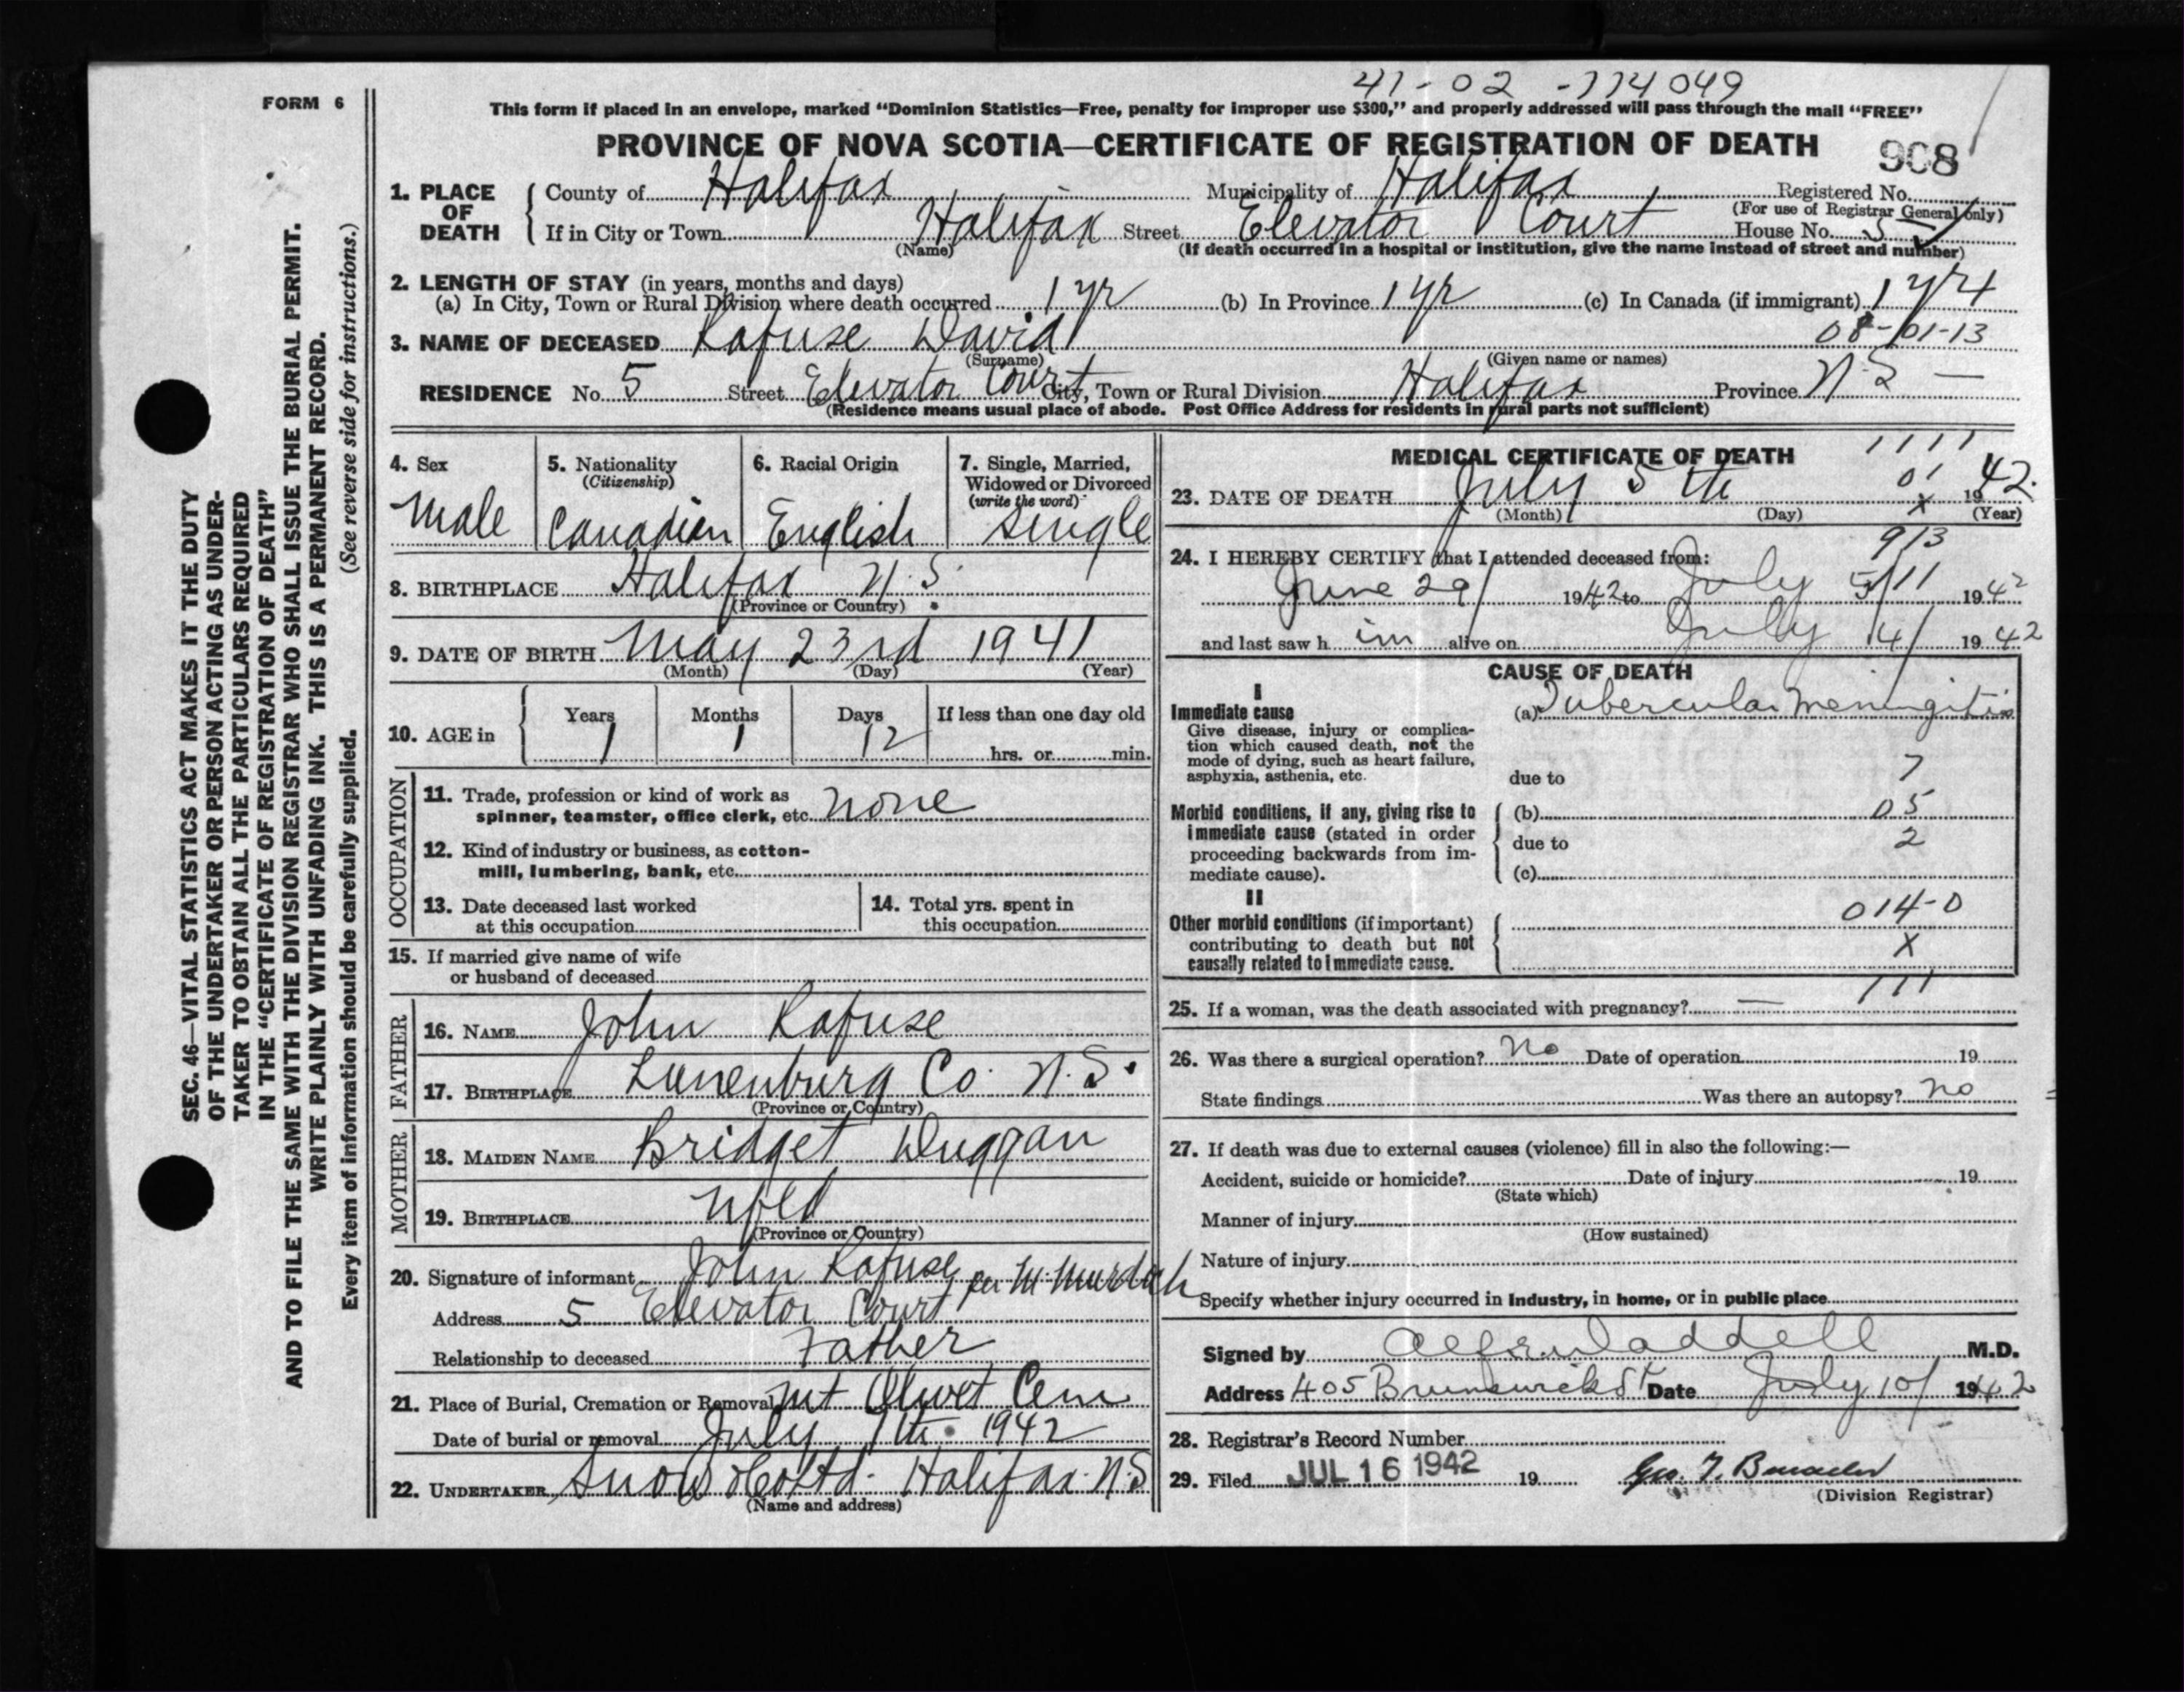 41-02-114049
FORM 6
This form if placed in an envelope, marked "Dominion Statistics—Free, penalty for improper use $300," and properly addressed will pass through the mail "FREE"
PROVINCE OF NOVA SCOTIA—CERTIFICATE OF REGISTRATION OF DEATH
908
1. PLACE OF DEATH
County of Halifax Municipality of Halifax Registered No.
(For use of Registrar General only)
If in City or Town Halifax Street Elevator Court House No. 5
(Name) (If death occurred in a hospital or institution, give the name instead of street and number)
2. LENGTH OF STAY (in years, months and days)
(a) In City, Town or Rural Division where death occurred 1 yr (b) In Province 1 yr (c) In Canada (if immigrant) 1 yr
08-01-13
3. NAME OF DECEASED Rafuse David
(Surname) (Given name or names)
RESIDENCE No. 5 Street Elevator Court City, Town or Rural Division Halifax Province N.S —
(Residence means usual place of abode. Post Office Address for residents in rural parts not sufficient)
4. Sex
Male
5. Nationality
(Citizenship)
Canadian
6. Racial Origin
English
7. Single, Married,
Widowed or Divorced
(write the word)
Single
8. BIRTHPLACE Halifax N.S.
(Province or Country)
9. DATE OF BIRTH May 23rd 1941
(Month) (Day) (Year)
10. AGE in
Years Months Days If less than one day old
1 1 12 hrs. or min.
OCCUPATION
11. Trade, profession or kind of work as
spinner, teamster, office clerk, etc. None
12. Kind of industry or business, as cotton-
mill, lumbering, bank, etc.
13. Date deceased last worked
at this occupation
14. Total yrs. spent in
this occupation
15. If married give name of wife
or husband of deceased
FATHER
16. NAME John Rafuse
17. BIRTHPLACE Lunenburg Co. N.S.
(Province or Country)
MOTHER
18. MAIDEN NAME Bridget Duggan
19. BIRTHPLACE Nfld
(Province or Country)
20. Signature of informant John Rafuse per M. Murdah
Address 5 Elevator Court
Relationship to deceased Father
21. Place of Burial, Cremation or Removal Mt Olivet Cem
Date of burial or removal July 7th 1942
22. UNDERTAKER Snow & Co Ltd. Halifax N.S
(Name and address)
MEDICAL CERTIFICATE OF DEATH
1111
01
23. DATE OF DEATH July 5th 1942.
(Month) (Day) x (Year)
913
24. I HEREBY CERTIFY that I attended deceased from:
June 29/ 1942 to July 5/11 1942
and last saw him alive on July 4/ 1942
CAUSE OF DEATH
I
Immediate cause
Give disease, injury or complica-
tion which caused death, not the
mode of dying, such as heart failure,
asphyxia, asthenia, etc.
(a) Tubercular Meningitis
7
due to
Morbid conditions, if any, giving rise to
immediate cause (stated in order
proceeding backwards from im-
mediate cause).
(b) 05
due to 2
(c)
II
Other morbid conditions (if important)
contributing to death but not
causally related to immediate cause.
014-0
X
111
25. If a woman, was the death associated with pregnancy? —
26. Was there a surgical operation? No Date of operation 19
State findings Was there an autopsy? No
27. If death was due to external causes (violence) fill in also the following:—
Accident, suicide or homicide? Date of injury 19
(State which)
Manner of injury
(How sustained)
Nature of injury
Specify whether injury occurred in Industry, in home, or in public place
Signed by Waddell M.D.
Address 405 Brunswick St Date July 10/ 1942
28. Registrar's Record Number
29. Filed JUL 16 1942 19 Geo. T.
(Division Registrar)
SEC. 46—VITAL STATISTICS ACT MAKES IT THE DUTY
OF THE UNDERTAKER OR PERSON ACTING AS UNDER-
TAKER TO OBTAIN ALL THE PARTICULARS REQUIRED
IN THE "CERTIFICATE OF REGISTRATION OF DEATH"
AND TO FILE THE SAME WITH THE DIVISION REGISTRAR WHO SHALL ISSUE THE BURIAL PERMIT.
WRITE PLAINLY WITH UNFADING INK. THIS IS A PERMANENT RECORD.
Every item of information should be carefully supplied. (See reverse side for instructions.)